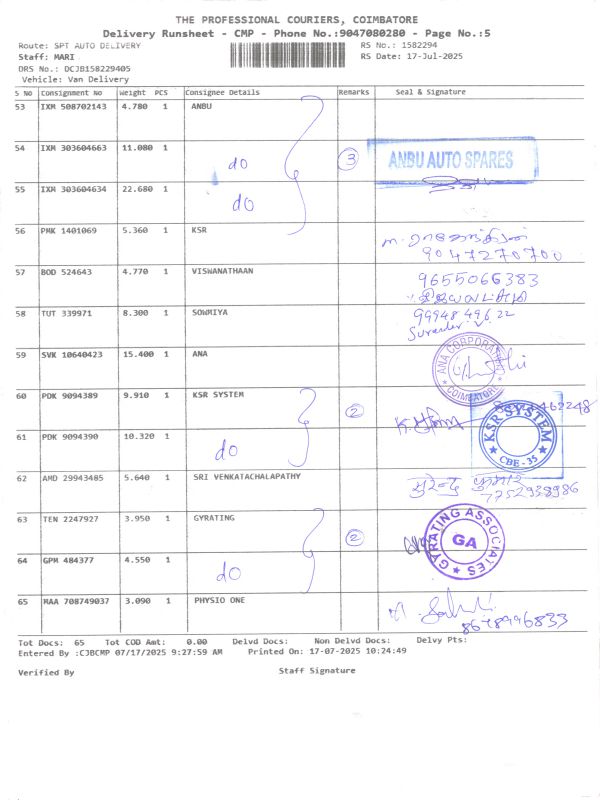 THE PROFESSIONAL COURIERS, COIMBATORE
Delivery Runsheet - CMP - Phone No.:9047080280 - Page No.:5
Route: SPT AUTO DELIVERY
RS No.: 1582294
Staff: MARI
RS Date: 17-Jul-2025
DRS No.: DCJB158229405
Vehicle: Van Delivery
S NO Consignment No Weight PCS Consignee Details Remarks Seal & Signature
53 IXM 508702143 4.780 1 ANBU
54 IXM 303604663 11.080 1 do 3 ANBU AUTO SPARES
55 IXM 303604634 22.680 1 do
56 PMK 1401069 5.360 1 KSR
9047270700
57 BOD 524643 4.770 1 VISWANATHAAN 9655066383
58 TUT 339971 8.300 1 SOWMIYA 99948 496 22
Surender V.
59 SVK 10640423 15.400 1 ANA ANA CORPORATION COIMBATORE
60 PDK 9094389 9.910 1 KSR SYSTEM 2
61 PDK 9094390 10.320 1 do KSR SYSTEM CBE-35
62 AMD 29943485 5.640 1 SRI VENKATACHALAPATHY
7752938986
63 TEN 2247927 3.950 1 GYRATING 2 GYRATING ASSOCIATES GA
64 GPM 484377 4.550 1 do
65 MAA 708749037 3.090 1 PHYSIO ONE
8678996833
Tot Docs: 65 Tot COD Amt: 0.00 Delvd Docs: Non Delvd Docs: Delvy Pts:
Entered By :CJBCMP 07/17/2025 9:27:59 AM Printed On: 17-07-2025 10:24:49
Verified By Staff Signature